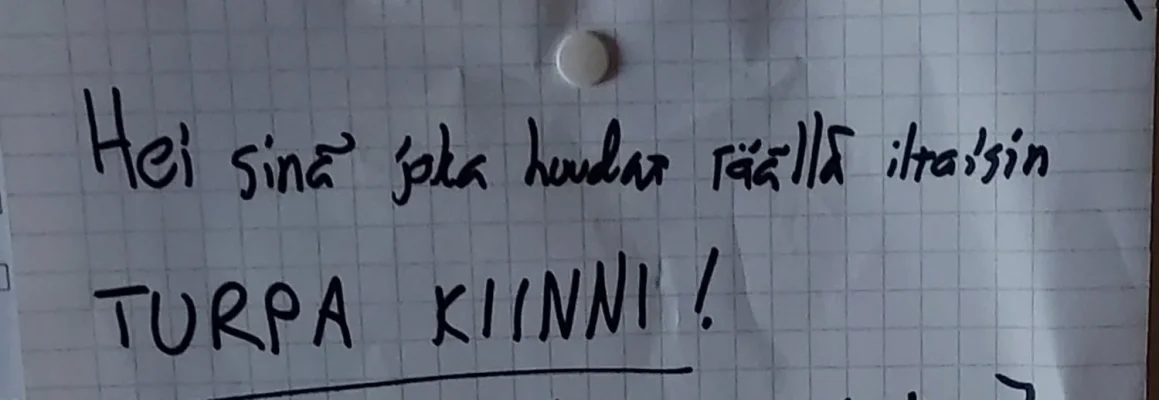 Hei sinä joka huudat täällä iltaisin
TURPA KIINNI!